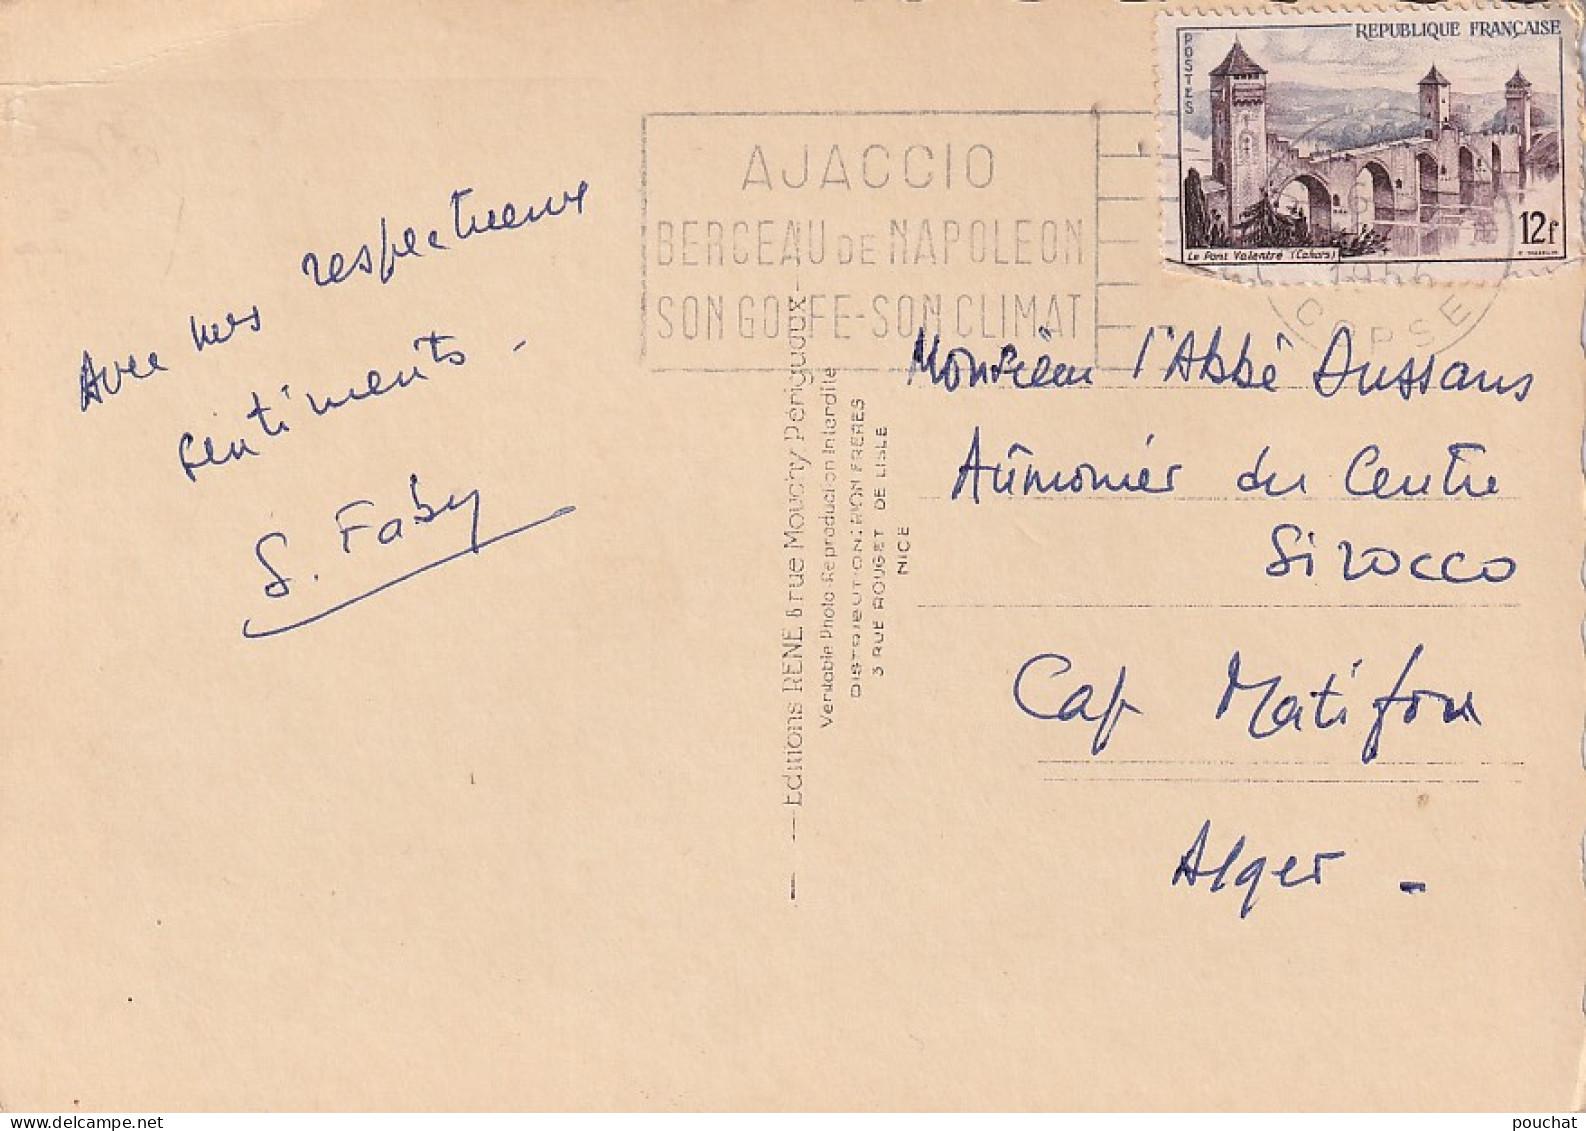 REPUBLIQUE FRANÇAISE
POSTES
12f
Le Pont Valentré (Cahors)
AJACCIO
BERCEAU DE NAPOLEON
SON GOLFE-SON CLIMAT
1956
CORSE
Avec mes respectueux
sentiments -
S. Faby
Editions RENE 8 rue Mouchy Périgueux
Véritable Photo-Reproduction Interdite
DISTRIBUTION: RION FRERES
3 RUE ROUGET DE LISLE
NICE
Monsieur l'Abbé Dussans
Aûmonier du Centre
Sirocco
Cap Matifou
Alger -
pouchat